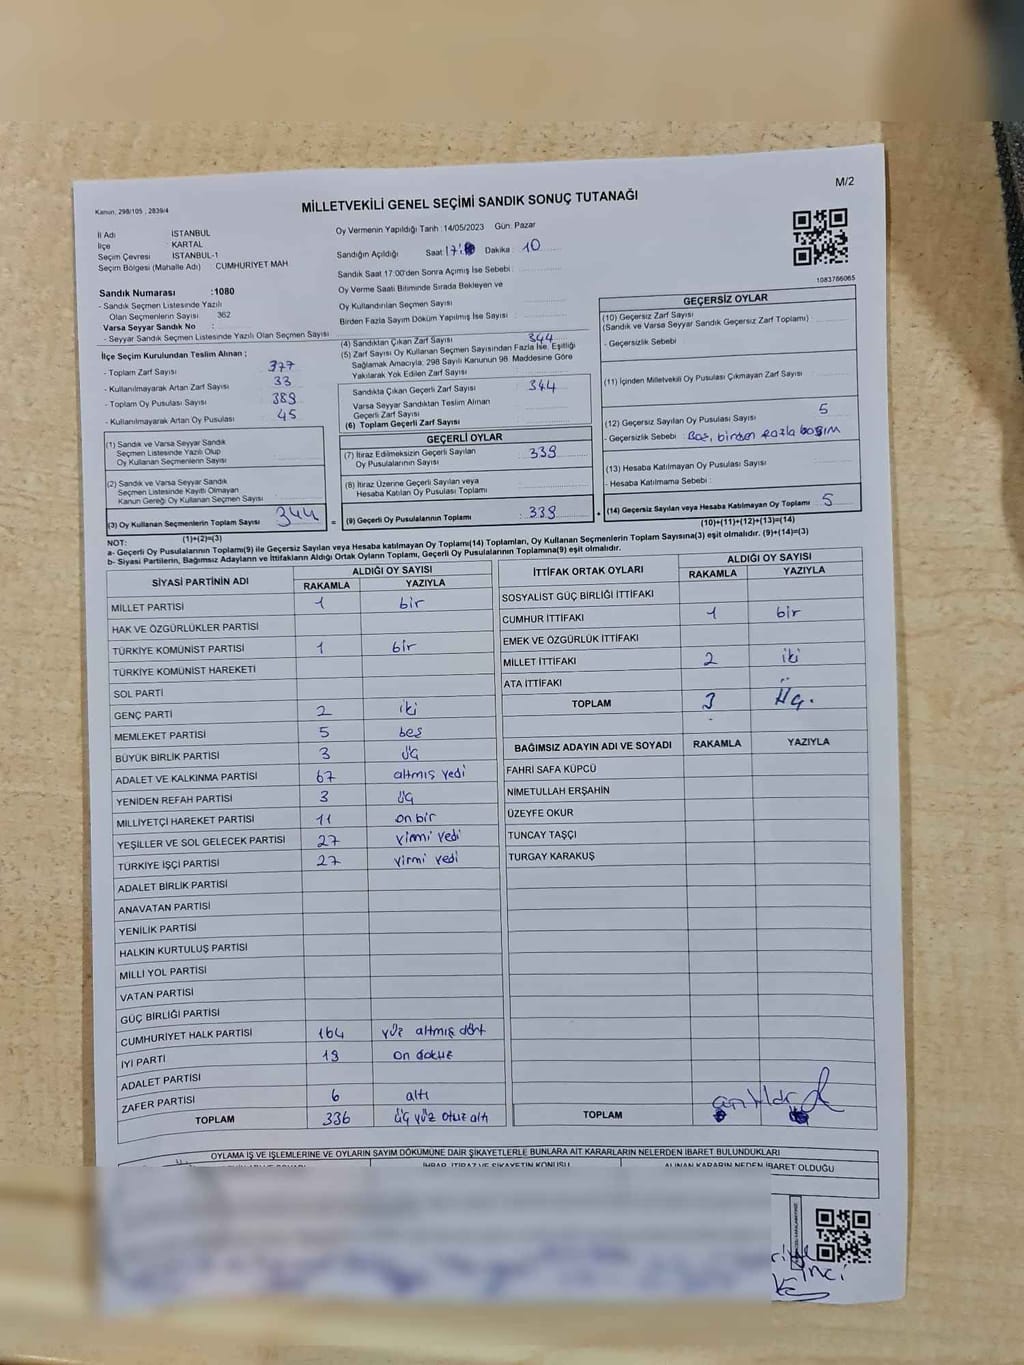 M/2
Kanun, 298/105 , 2839/4
MİLLETVEKİLİ GENEL SEÇİMİ SANDIK SONUÇ TUTANAĞI
İl Adı İSTANBUL
İlçe : KARTAL
Seçim Çevresi : İSTANBUL-1
Seçim Bölgesi (Mahalle Adı) : CUMHURİYET MAH.
Sandık Numarası :1080
- Sandık Seçmen Listesinde Yazılı
Olan Seçmenlerin Sayısı : 362
Varsa Seyyar Sandık No :
- Seyyar Sandık Seçmen Listesinde Yazılı Olan Seçmen Sayısı :
İlçe Seçim Kurulundan Teslim Alınan ;
- Toplam Zarf Sayısı : 377
- Kullanılmayarak Artan Zarf Sayısı : 33
- Toplam Oy Pusulası Sayısı : 389
- Kullanılmayarak Artan Oy Pusulası : 45
(1) Sandık ve Varsa Seyyar Sandık
Seçmen Listesinde Yazılı Olup
Oy Kullanan Seçmenlerin Sayısı :
(2) Sandık ve Varsa Seyyar Sandık
Seçmen Listesinde Kayıtlı Olmayan
Kanun Gereği Oy Kullanan Seçmen Sayısı :
(3) Oy Kullanan Seçmenlerin Toplam Sayısı : 344
(1)+(2)=(3)
Oy Vermenin Yapıldığı Tarih : 14/05/2023 Gün: Pazar
Sandığın Açıldığı Saat : 17: Dakika : 10
Sandık Saat 17:00'den Sonra Açımış İse Sebebi :
Oy Verme Saati Bitiminde Sırada Bekleyen ve
Oy Kullandırılan Seçmen Sayısı :
Birden Fazla Sayım Döküm Yapılmış İse Sayısı :
(4) Sandıktan Çıkan Zarf Sayısı : 344
(5) Zarf Sayısı Oy Kullanan Seçmen Sayısından Fazla İse, Eşitliği
Sağlamak Amacıyla; 298 Sayılı Kanunun 98. Maddesine Göre
Yakılarak Yok Edilen Zarf Sayısı :
Sandıkta Çıkan Geçerli Zarf Sayısı : 344
Varsa Seyyar Sandıktan Teslim Alınan
Geçerli Zarf Sayısı :
(6) Toplam Geçerli Zarf Sayısı :
GEÇERLİ OYLAR
(7) İtiraz Edilmeksizin Geçerli Sayılan
Oy Pusulalarının Sayısı : 339
(8) İtiraz Üzerine Geçerli Sayılan veya
Hesaba Katılan Oy Pusulası Toplamı :
= (9) Geçerli Oy Pusulalarının Toplamı : 339 +
1083766065
GEÇERSİZ OYLAR
(10) Geçersiz Zarf Sayısı
(Sandık ve Varsa Seyyar Sandık Geçersiz Zarf Toplamı) :
- Geçersizlik Sebebi :
(11) İçinden Milletvekili Oy Pusulası Çıkmayan Zarf Sayısı :
(12) Geçersiz Sayılan Oy Pusulası Sayısı : 5
- Geçersizlik Sebebi : Boş, birden fazla basım
(13) Hesaba Katılmayan Oy Pusulası Sayısı :
- Hesaba Katılmama Sebebi :
(14) Geçersiz Sayılan veya Hesaba Katılmayan Oy Toplamı : 5
(10)+(11)+(12)+(13)=(14)
NOT:
a- Geçerli Oy Pusulalarının Toplamı(9) ile Geçersiz Sayılan veya Hesaba katılmayan Oy Toplamı(14) Toplamları, Oy Kullanan Seçmenlerin Toplam Sayısına(3) eşit olmalıdır. (9)+(14)=(3)
b- Siyasi Partilerin, Bağımsız Adayların ve İttifakların Aldığı Ortak Oyların Toplamı, Geçerli Oy Pusulalarının Toplamına(9) eşit olmalıdır.
SİYASİ PARTİNİN ADI ALDIĞI OY SAYISI
RAKAMLA YAZIYLA
MİLLET PARTİSİ 1 bir
HAK VE ÖZGÜRLÜKLER PARTİSİ
TÜRKİYE KOMÜNİST PARTİSİ 1 bir
TÜRKİYE KOMÜNİST HAREKETİ
SOL PARTİ
GENÇ PARTİ 2 iki
MEMLEKET PARTİSİ 5 beş
BÜYÜK BİRLİK PARTİSİ 3 üç
ADALET VE KALKINMA PARTİSİ 67 altmış yedi
YENİDEN REFAH PARTİSİ 3 üç
MİLLİYETÇİ HAREKET PARTİSİ 11 on bir
YEŞİLLER VE SOL GELECEK PARTİSİ 27 yirmi yedi
TÜRKİYE İŞÇİ PARTİSİ 27 yirmi yedi
ADALET BİRLİK PARTİSİ
ANAVATAN PARTİSİ
YENİLİK PARTİSİ
HALKIN KURTULUŞ PARTİSİ
MİLLİ YOL PARTİSİ
VATAN PARTİSİ
GÜÇ BİRLİĞİ PARTİSİ
CUMHURİYET HALK PARTİSİ 164 yüz altmış dört
İYİ PARTİ 19 on dokuz
ADALET PARTİSİ
ZAFER PARTİSİ 6 altı
TOPLAM 336 üç yüz otuz altı
İTTİFAK ORTAK OYLARI ALDIĞI OY SAYISI
RAKAMLA YAZIYLA
SOSYALİST GÜÇ BİRLİĞİ İTTİFAKI
CUMHUR İTTİFAKI 1 bir
EMEK VE ÖZGÜRLÜK İTTİFAKI
MİLLET İTTİFAKI 2 iki
ATA İTTİFAKI
TOPLAM 3 Üç.
BAĞIMSIZ ADAYIN ADI VE SOYADI RAKAMLA YAZIYLA
FAHRİ SAFA KÜPCÜ
NİMETULLAH ERŞAHİN
ÜZEYFE OKUR
TUNCAY TAŞÇI
TURGAY KARAKUŞ
TOPLAM
OYLAMA İŞ VE İŞLEMLERİNE VE OYLARIN SAYIM DÖKÜMÜNE DAİR ŞİKAYETLERLE BUNLARA AİT KARARLARIN NELERDEN İBARET BULUNDUKLARI
İHBAR, İTİRAZ VE ŞİKAYETİN KONUSU ALINAN KARARIN NEDEN İBARET OLDUĞU
inci